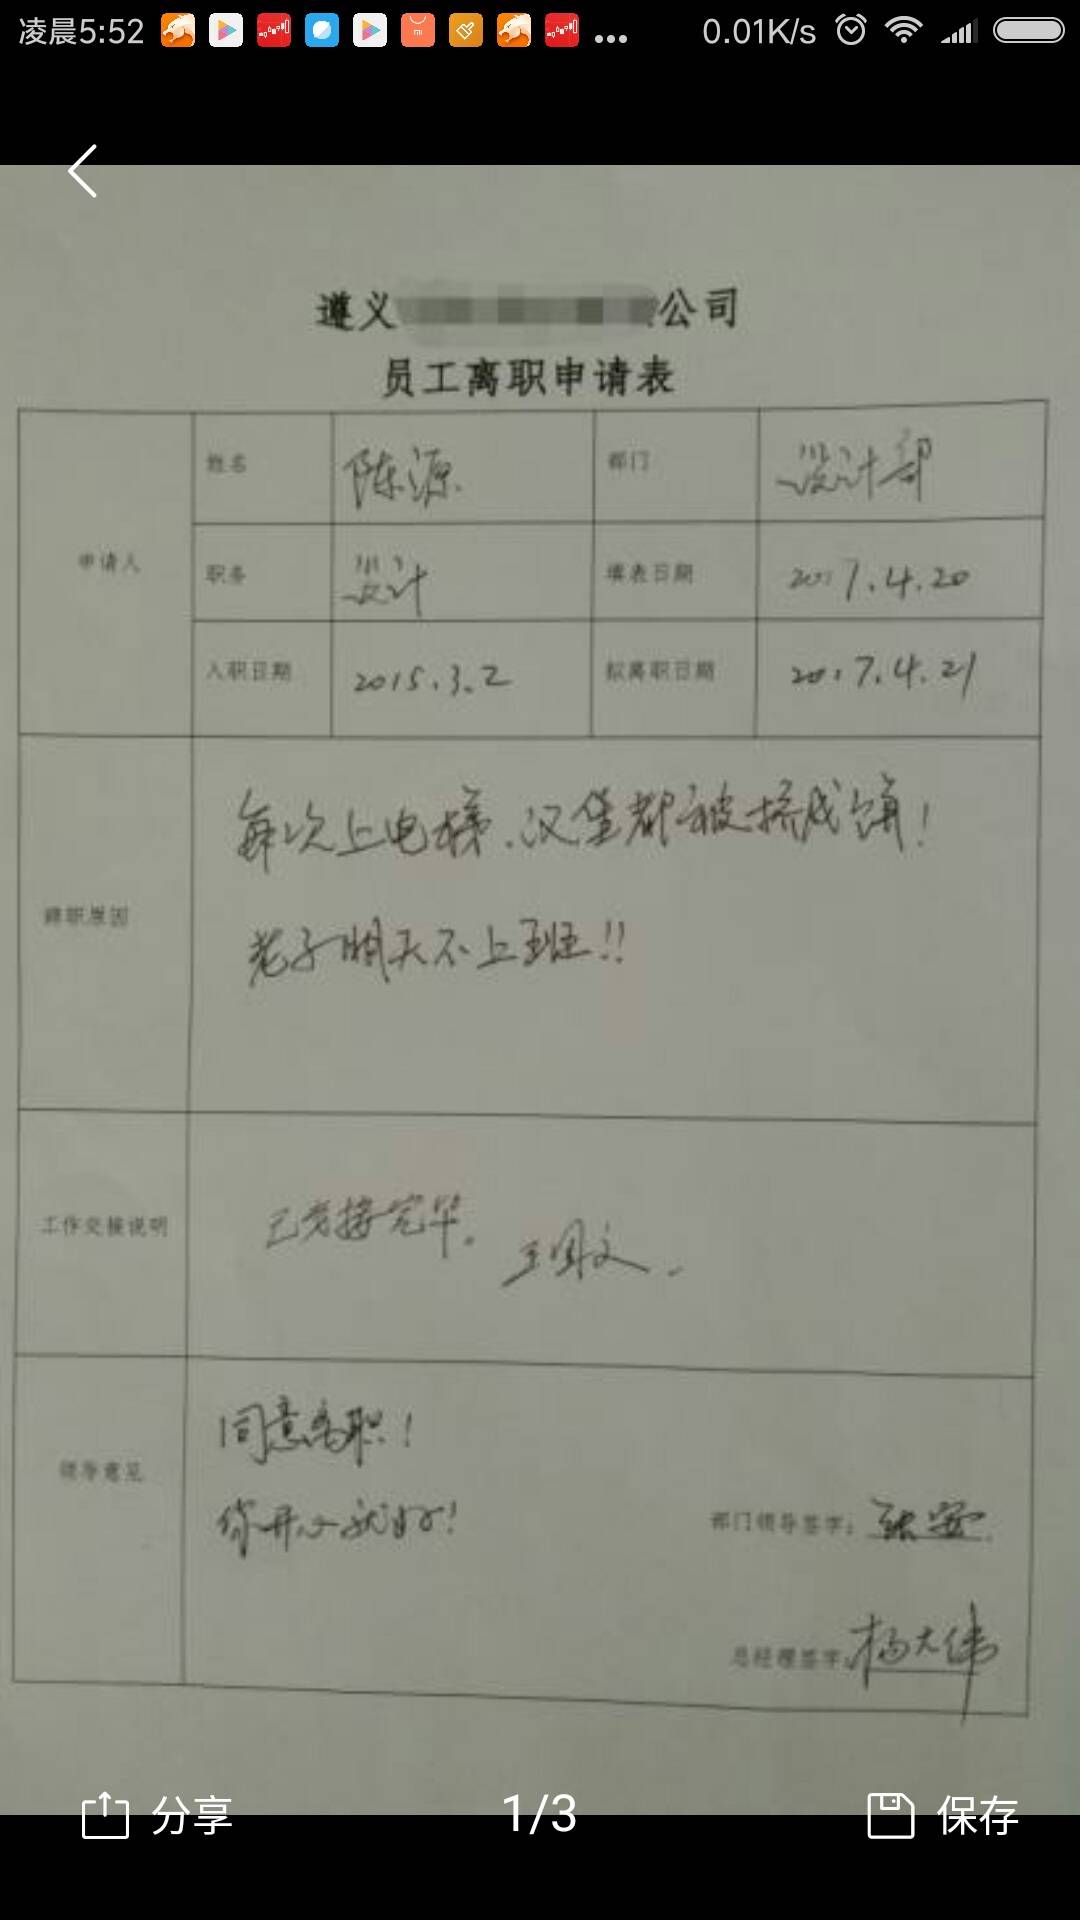 凌晨5:52
0.01K/s
遵义
公司
员工离职申请表
申请人
姓名
陈源
部门
设计部
职务
设计
填表日期
2017.4.20
入职日期
2015.3.2
拟离职日期
2017.4.21
辞职原因
每次上电梯,汉堡都被挤成饼!
老子明天不上班!!
工作交接说明
已交接完毕。
领导意见
同意离职!
你开心就好!
部门领导签字:
总经理签字:
杨大伟
分享
1/3
保存